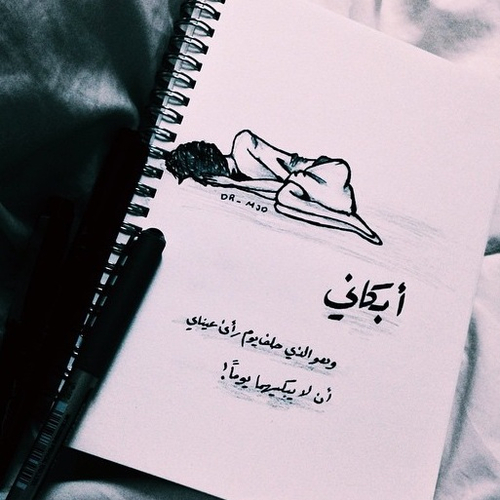 DR-MJO
أبكاني
وهو الذي حلف يوم رأى عيناي
أن لا يبكيهما يوماً!